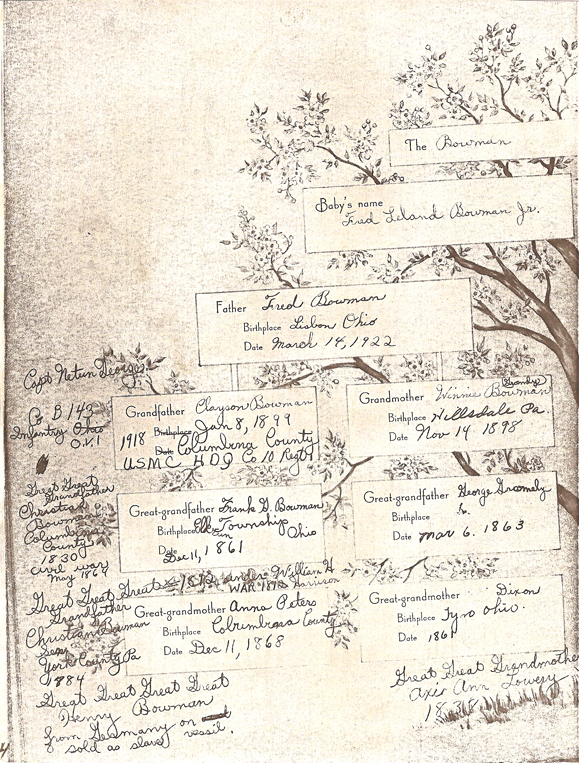 The Bowman
Baby's name
Fred Leland Bowman Jr.
Father Fred Bowman
Birthplace Lisbon Ohio
Date March 14, 1922
Grandfather Clayson Bowman
1918 Birthplace Jan 8, 1899
Date Columbina County
USMC HDQ Co 10 Regt
Grandmother Winnie Bowman
Birthplace Hillsdale Pa.
Date Nov 14 1898
Great-grandfather Frank G. Bowman
Birthplace Elk Run Township
Ohio
Date Dec 11, 1861
Great-grandfather George
Birthplace
Date Mar 6. 1863
Great-grandmother Anna Peters
Birthplace Columbiana County
Date Dec 11, 1868
Great-grandmother Dixon
Birthplace Tyro Ohio.
Date 186
Capt
Co B 143
Infantry Ohio
O.V.I
Great Great
Grandfather
Christian
Bowman
Columbina
County
1830
Civil War
May 1864
Great Great Great 1812 under William H
Harrison
WAR 1812
Grandfather
Christian Bowman
York County Pa
1884
Great Great Great Great
Henry Bowman
from Germany on
sold as slave vessil.
Great Great Grandmother
Ann Lowery
1838